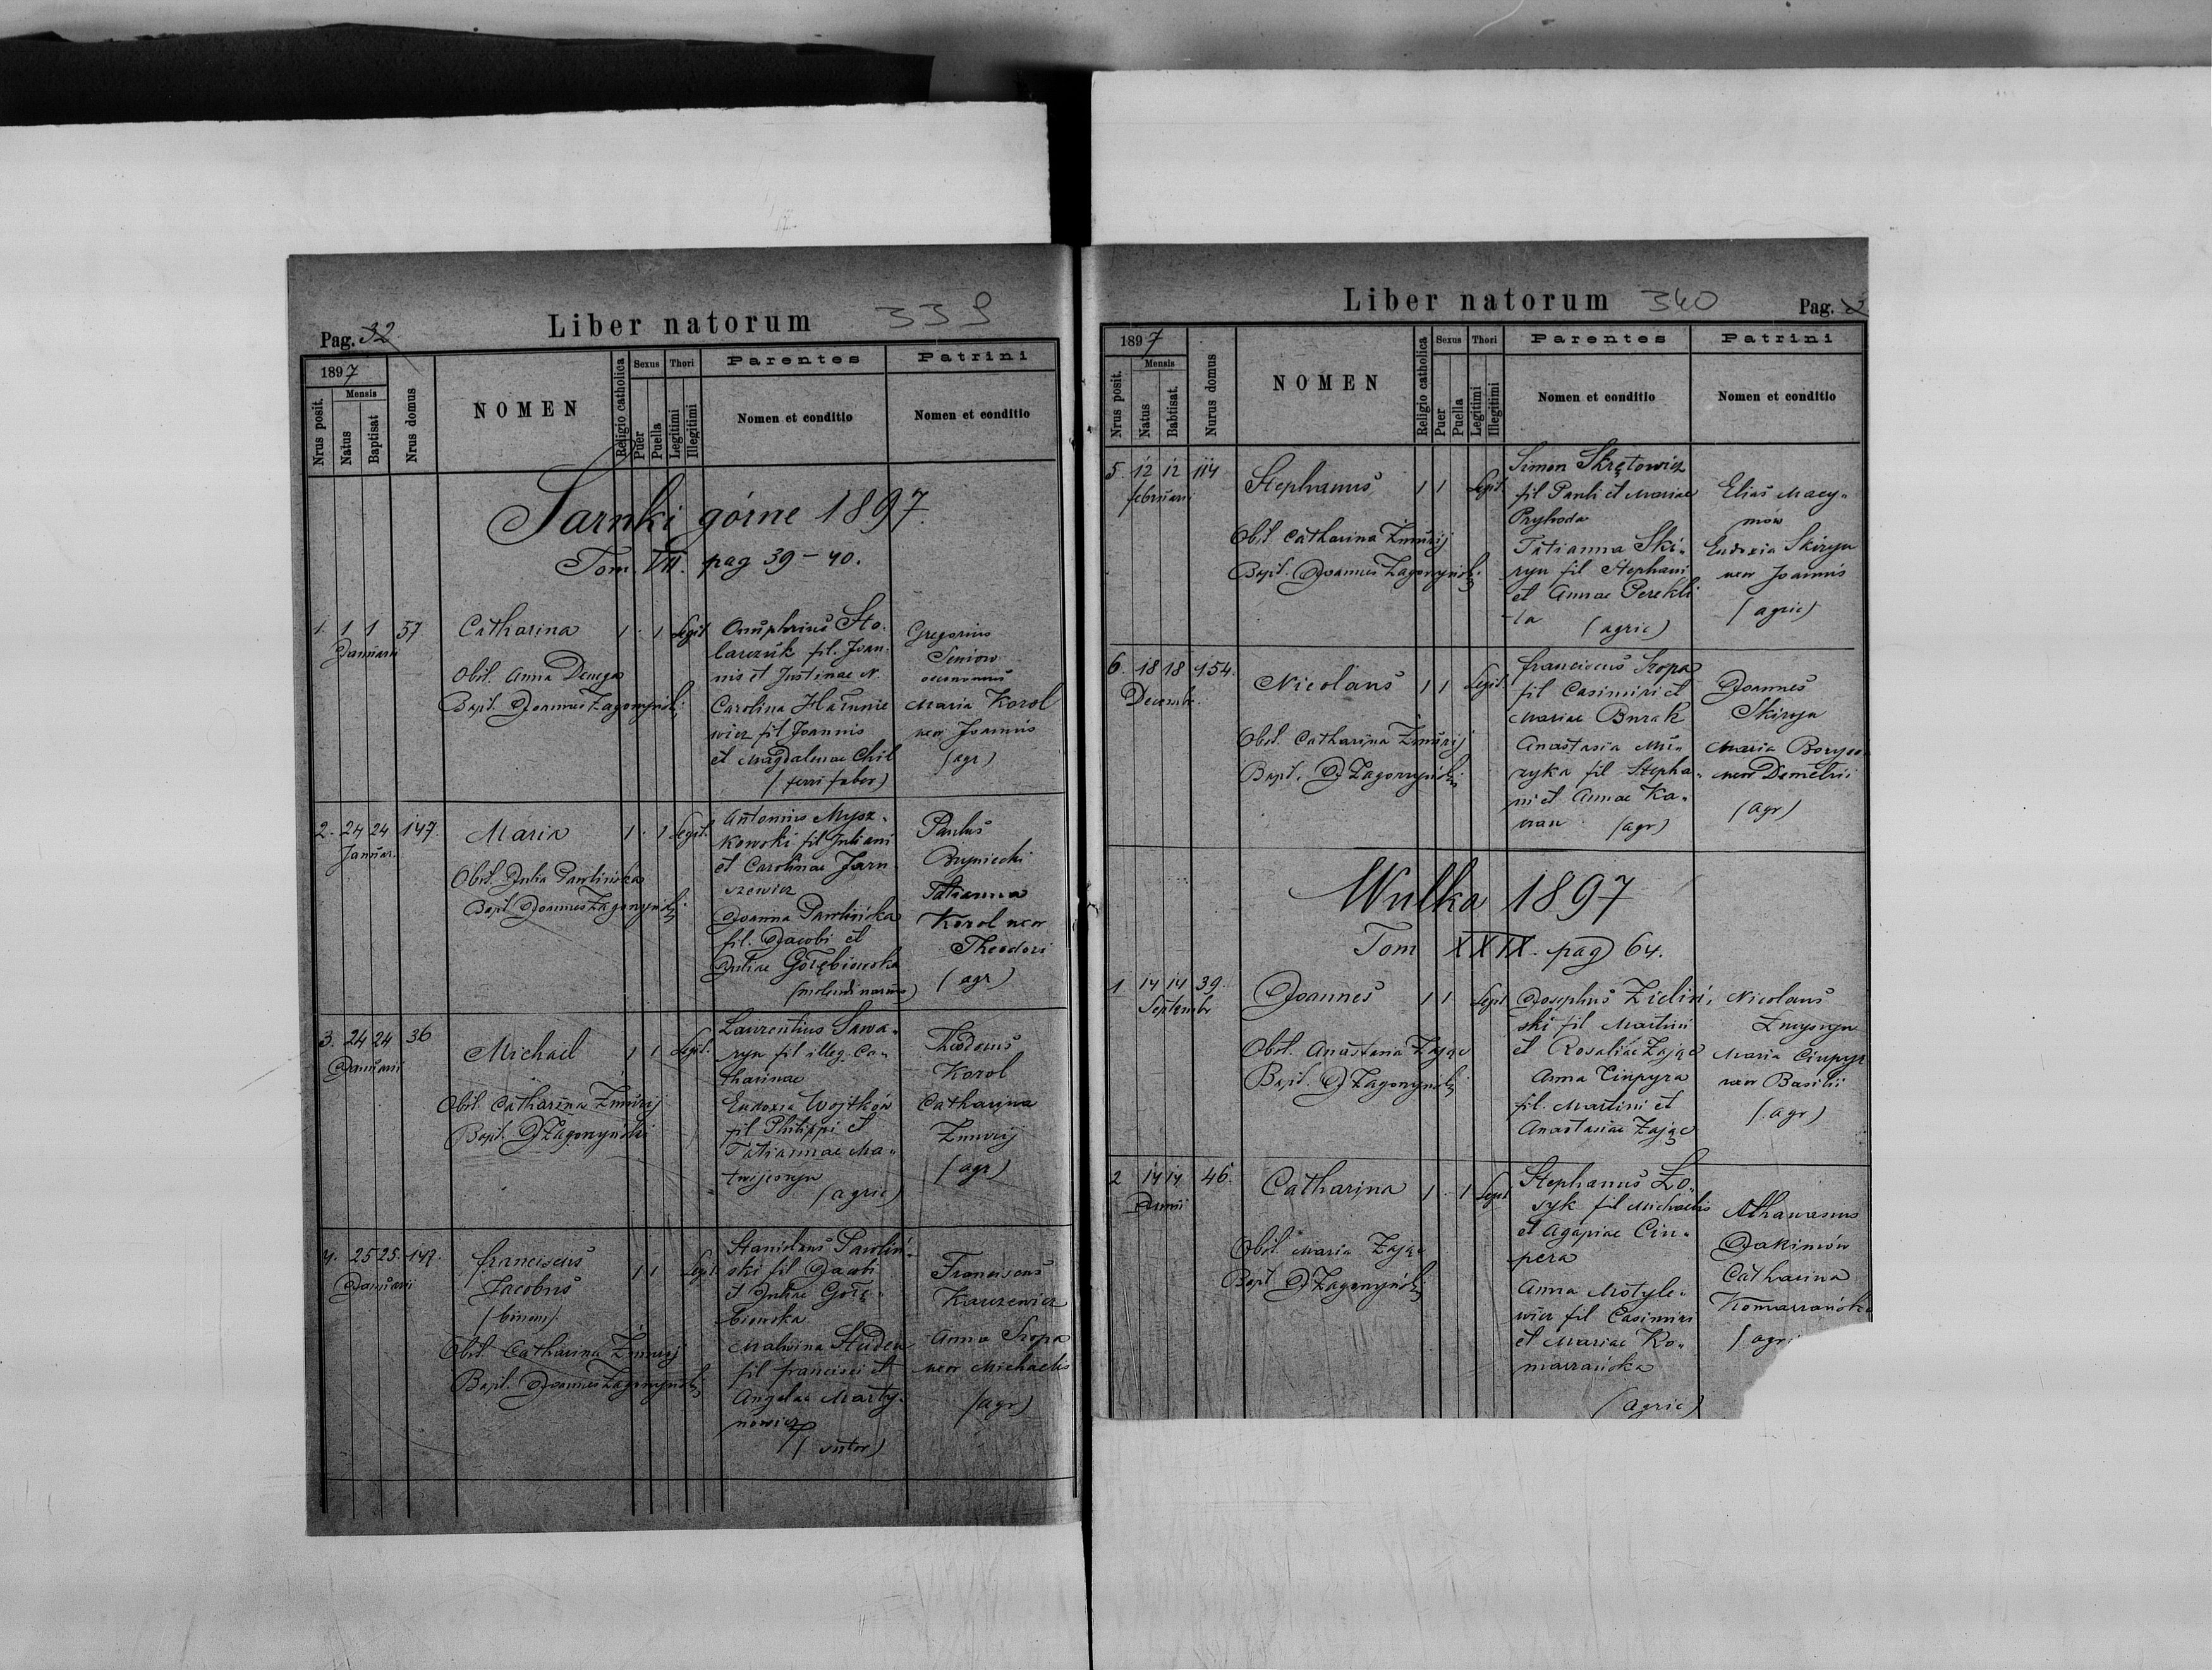 Pag. 32
Liber natorum
339
1897
Nrus posit.
Mensis
Natus
Baptisat
Nrus domus
NOMEN
Religio catholica
Sexus
Puer
Puella
Thori
Legitimi
Illegitimi
Parentes
Nomen et conditio
Patrini
Nomen et conditio
Sarnki górne 1897.
Tom. VII. pag 39-40.
1. 1 1 57
Januarii
Catharina
1 . 1 Legit
Obst. Anna Denega
Bapt. Joannes Zagorzyński
Onuphrius Sto-
larczuk fil. Joan-
nis et Justinae N.
Carolina
wicz fil Joannis
et Magdalenae Chil
(ferri faber)
Gregorius
Seniow
oeconomus
Maria Korol
uxor Joannis
(agr)
2. 24 24 147.
Januar.
Maria
1 . 1 Legit.
Obst. Julia Pawlińska
Bapt. Joannes Zagorzyński
Antonius Mysz-
kowski fil Juliani
et Carolinae Jaru-
szewicz
Joanna Pawlińska
fil. Jacobi et
Juliae Gołębiowska
(molendinarius)
Paulus
Tatianna
Korol uxor
Theodori
(agr)
3. 24 24 36
Januarii
Michael
1 1 Legit.
Obst. Catharina Żmurij
Bapt. J Zagorzyński
Laurentius Sawa-
ryn fil illeg. Ca-
tharinae
Eudoxia Wojtków
fil Philippi et
Tatiannae Ma-
twijczyn
(agric)
Theodorus
Korol
Catharina
Żmurij
(agr)
4. 25 25. 147.
Januarii
Franciscus
Jacobus
(binom)
1 1 Legit
Obst. Catharina Żmurij
Bapt. Joannes Zagorzyński
Stanislaus Pawliń-
ski fil Jacobi
et Juliae Gołę-
biowska
Malwina Studen
fil Francisci et
Angelae Marty-
nowicz
(sutor)
Franciscus
Karczewicz
Anna Szopa
uxor Michaelis
(agr)
Liber natorum
340
Pag.
1897
Nrus posit.
Mensis
Natus
Babtisat.
Nurus domus
NOMEN
Religio catholica
Sexus
Puer
Puella
Thori
Legitimi
Illegitimi
Parentes
Nomen et conditio
Patrini
Nomen et conditio
5. 12 12 114
februarii
Stephanus
1 1 Legit.
Obst. Catharina Żmurij
Bapt. Joannes Zagorzyński
Simon Skrętowicz
fil Pauli et Mariae
Pryhoda
Tatianna Ski-
ryn fil Stephani
et Annae Perekli
ta (agric)
Elias Macy-
mow
Eudoxia Skiryn
uxor Joannis
(agric)
6. 18 18 154.
Decemb.
Nicolaus
1 1 Legit.
Obst. Catharina Żmurij
Bapt. J Zagorzyński
Franciscus Szopa
fil Casimiri et
Mariae Burak
Anastasia Mu-
zyka fil Stepha-
ni et Annae Ka-
(agr)
Joannes
Skiryn
Maria
uxor Demetrii
(agr)
Wulka 1897
Tom XXIX. pag 64.
1 14 14 39.
Septembr
Joannes
1 1 Legit
Obst. Anastasia Zając
Bapt. J Zagorzyński
Josephus Zieliń-
ski fil Martini
et Rosaliae Zając
Anna Ciupyra
fil. Martini et
Anastasiae Zając
Nicolaus
Maria Ciupyr
uxor Basilii
(agr)
2 14 14 46.
Junii
Catharina
1 . 1 Legit
Obst. Maria Zając
Bapt J Zagorzyński
Stephanus Ło-
syk fil Michaelis
et Agapiae Ciu-
pera
Anna Motyle-
wicz fil Casimiri
et Mariae Ko-
marzańska
(agric)
Athanasius
Jakimów
Catharina
Komarzańska
(agri